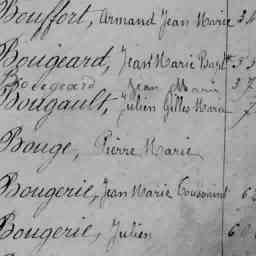 Bouffort, Armand Jean Marie 34
Bougeard, Jean Marie Bapt 55
Bougeard Jean Marie 37
Bougault, Julien Gilles Marie 7
Bouge, Pierre Marie
Bougerie, Jean Marie Toussaint 6
Bougerie, Julien 60